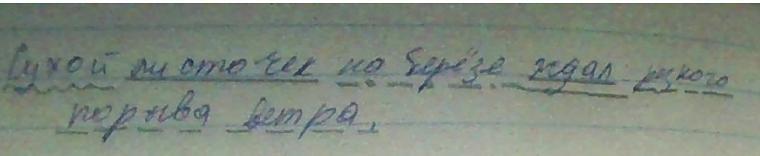 Сухой листочек на берёзе ждал резкого
порыва ветра.